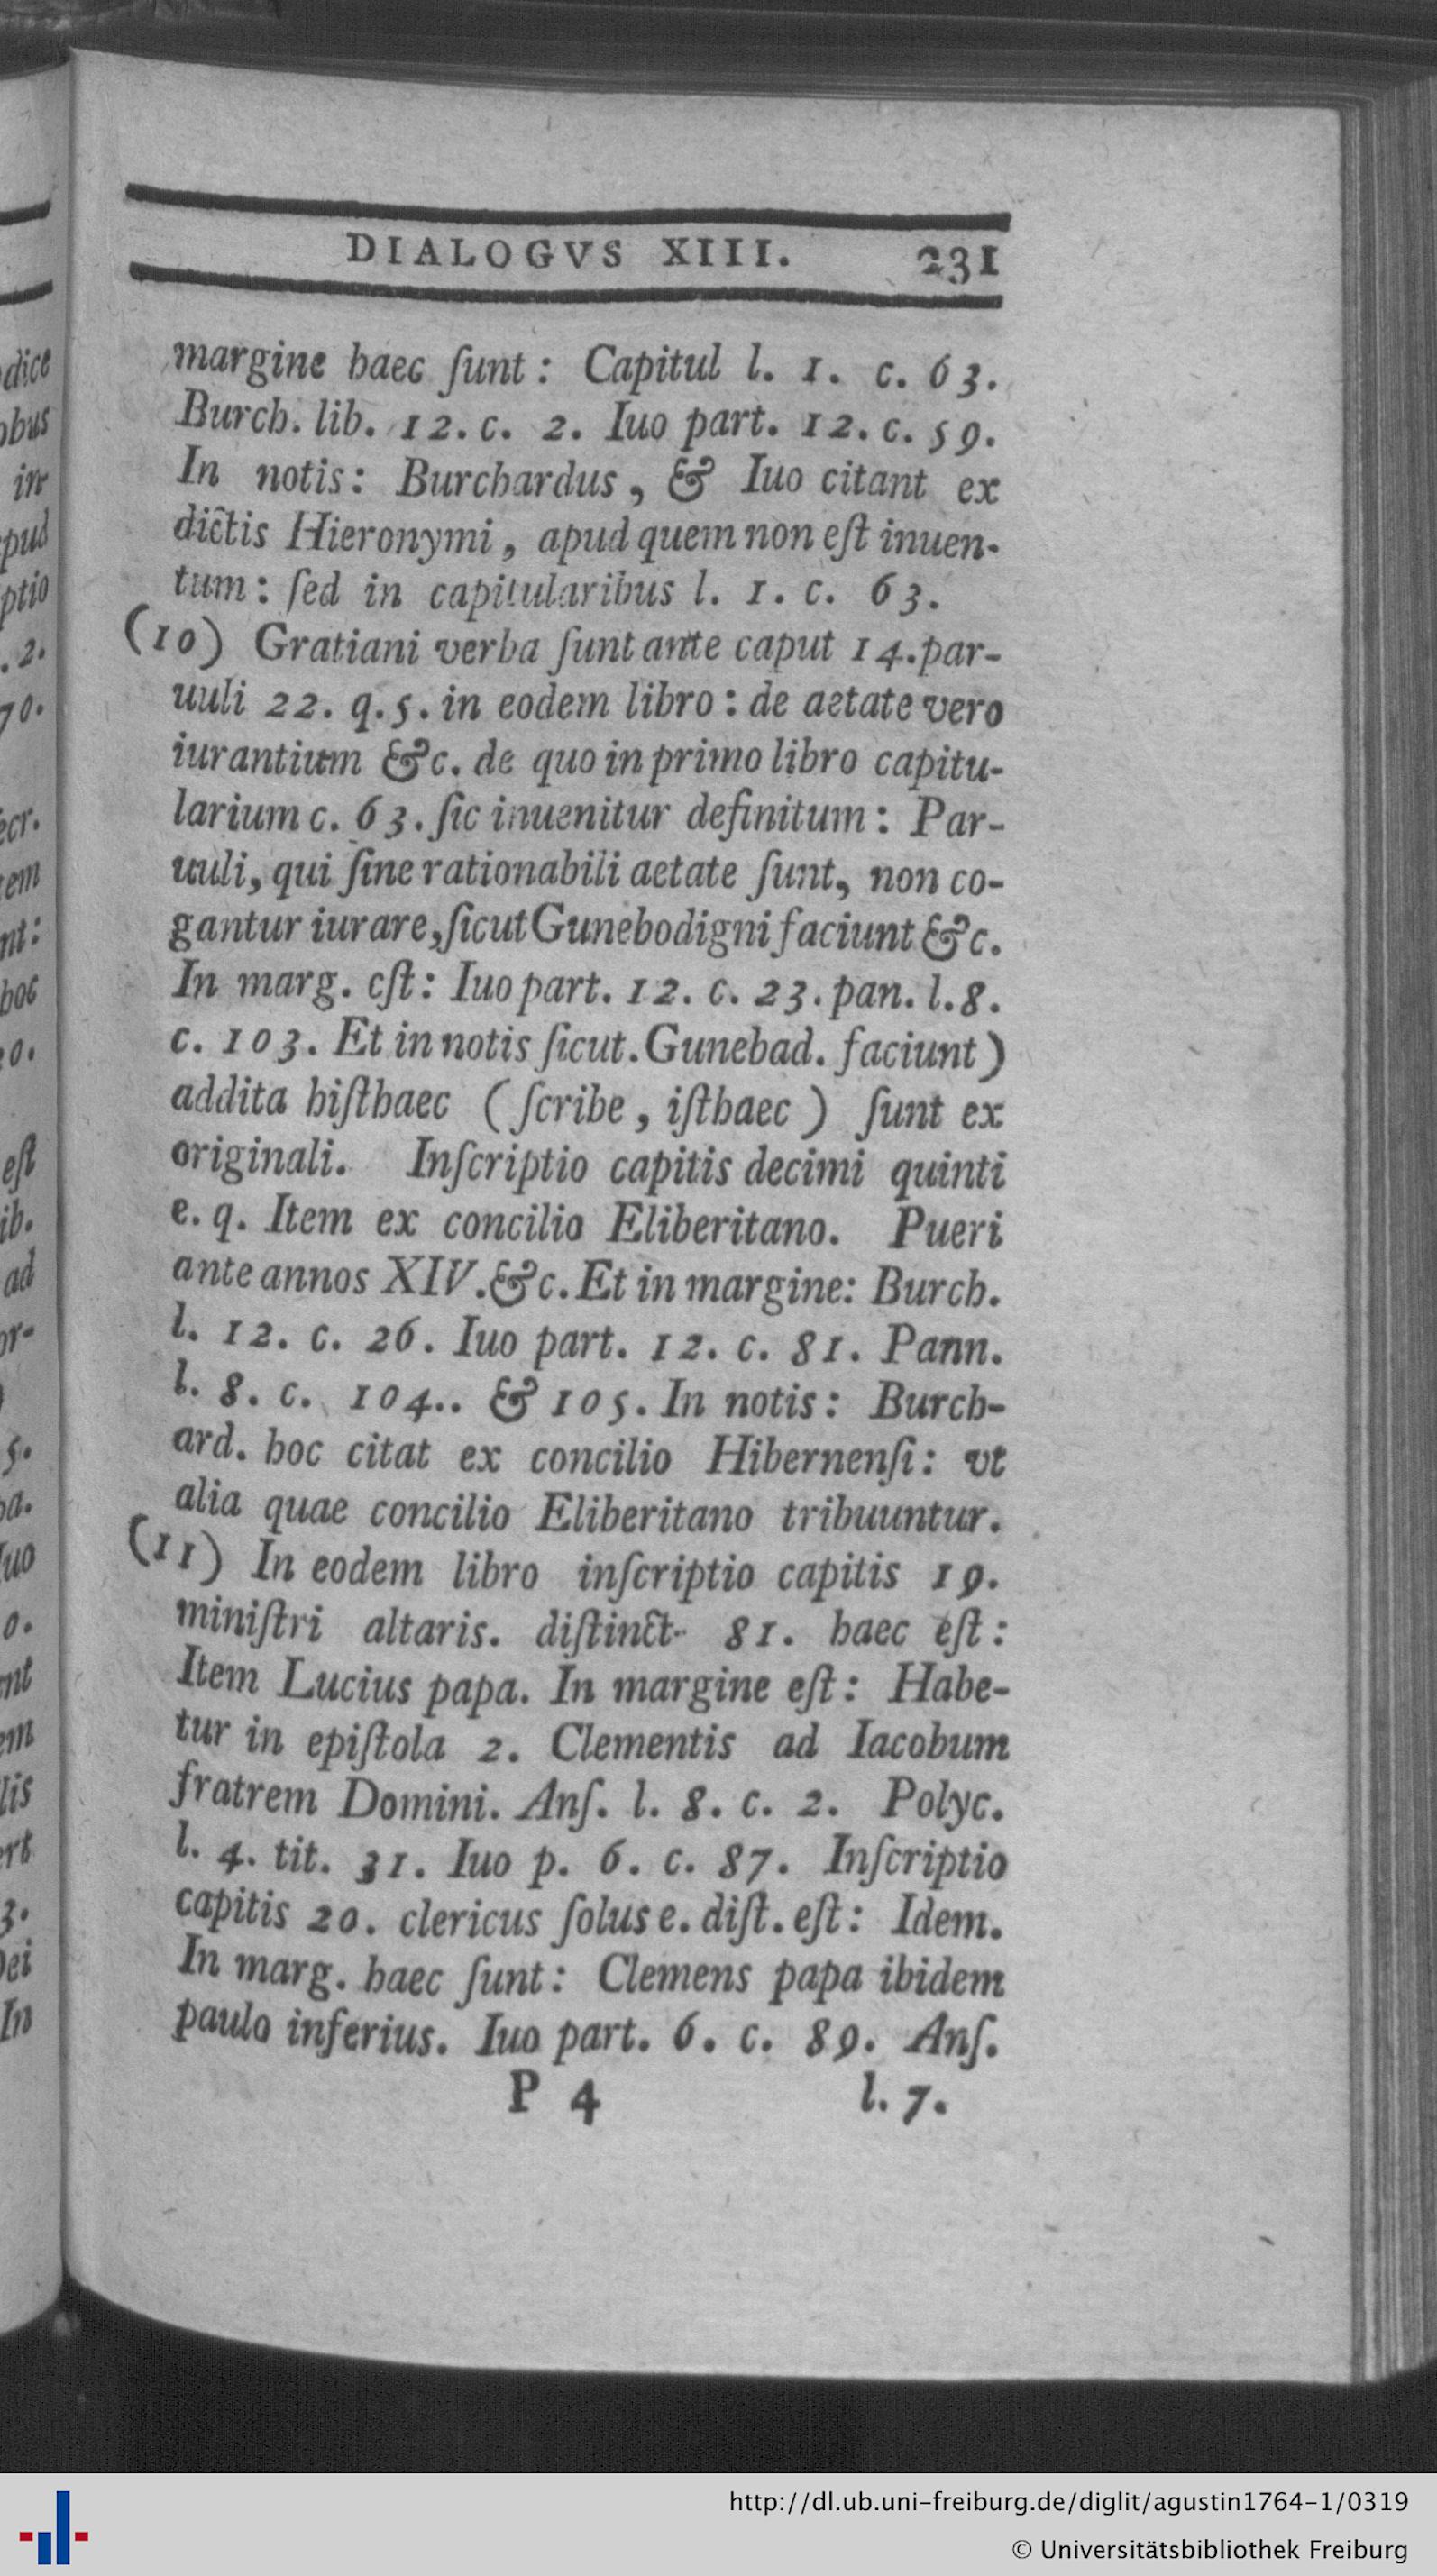 DIALOGVS XIII. 231
margine haec ſunt: Capitul l. 1. c. 63.
Burch. lib. 12. c. 2. Iuo part. 12. c. 59.
In notis: Burchardus, & Iuo citant ex
dictis Hieronymi, apud quem non eſt inuen-
tum: ſed in capitularibus l. 1. c. 63.
(10) Gratiani verba ſunt ante caput 14. par-
uuli 22. q. 5. in eodem libro: de aetate vero
iurantium &c. de quo in primo libro capitu-
larium c. 63. ſic inuenitur definitum: Par-
uuli, qui ſine rationabili aetate ſunt, non co-
gantur iurare, ſicut Gunebodigni faciunt &c.
In marg. eſt: Iuo part. 12. c. 23. pan. l. 8.
c. 103. Et in notis ſicut. Gunebad. faciunt)
addita hiſthaec (ſcribe, iſthaec) ſunt ex
originali. Inſcriptio capitis decimi quinti
e. q. Item ex concilio Eliberitano. Pueri
ante annos XIV. &c. Et in margine: Burch.
l. 12. c. 26. Iuo part. 12. c. 81. Pann.
l. 8. c. 104.. & 105. In notis: Burch-
ard. hoc citat ex concilio Hibernenſi: vt
alia quae concilio Eliberitano tribuuntur.
(11) In eodem libro inſcriptio capitis 19.
miniſtri altaris. diſtinct. 81. haec eſt:
Item Lucius papa. In margine eſt: Habe-
tur in epiſtola 2. Clementis ad Iacobum
fratrem Domini. Anſ. l. 8. c. 2. Polyc.
l. 4. tit. 31. Iuo p. 6. c. 87. Inſcriptio
capitis 20. clericus ſolus e. diſt. eſt: Idem.
In marg. haec ſunt: Clemens papa ibidem
paulo inferius. Iuo part. 6. c. 89. Anſ.
P 4 l. 7.
dice
obus
in
pud
ptio
. 2.
70.
ecr.
em
nt:
hoc
0.
eſt
ib.
ad
or-
5.
Iuo
0.
nt
em
lis
ert
3.
Dei
In
http://dl.ub.uni-freiburg.de/diglit/agustin1764-1/0319
© Universitätsbibliothek Freiburg